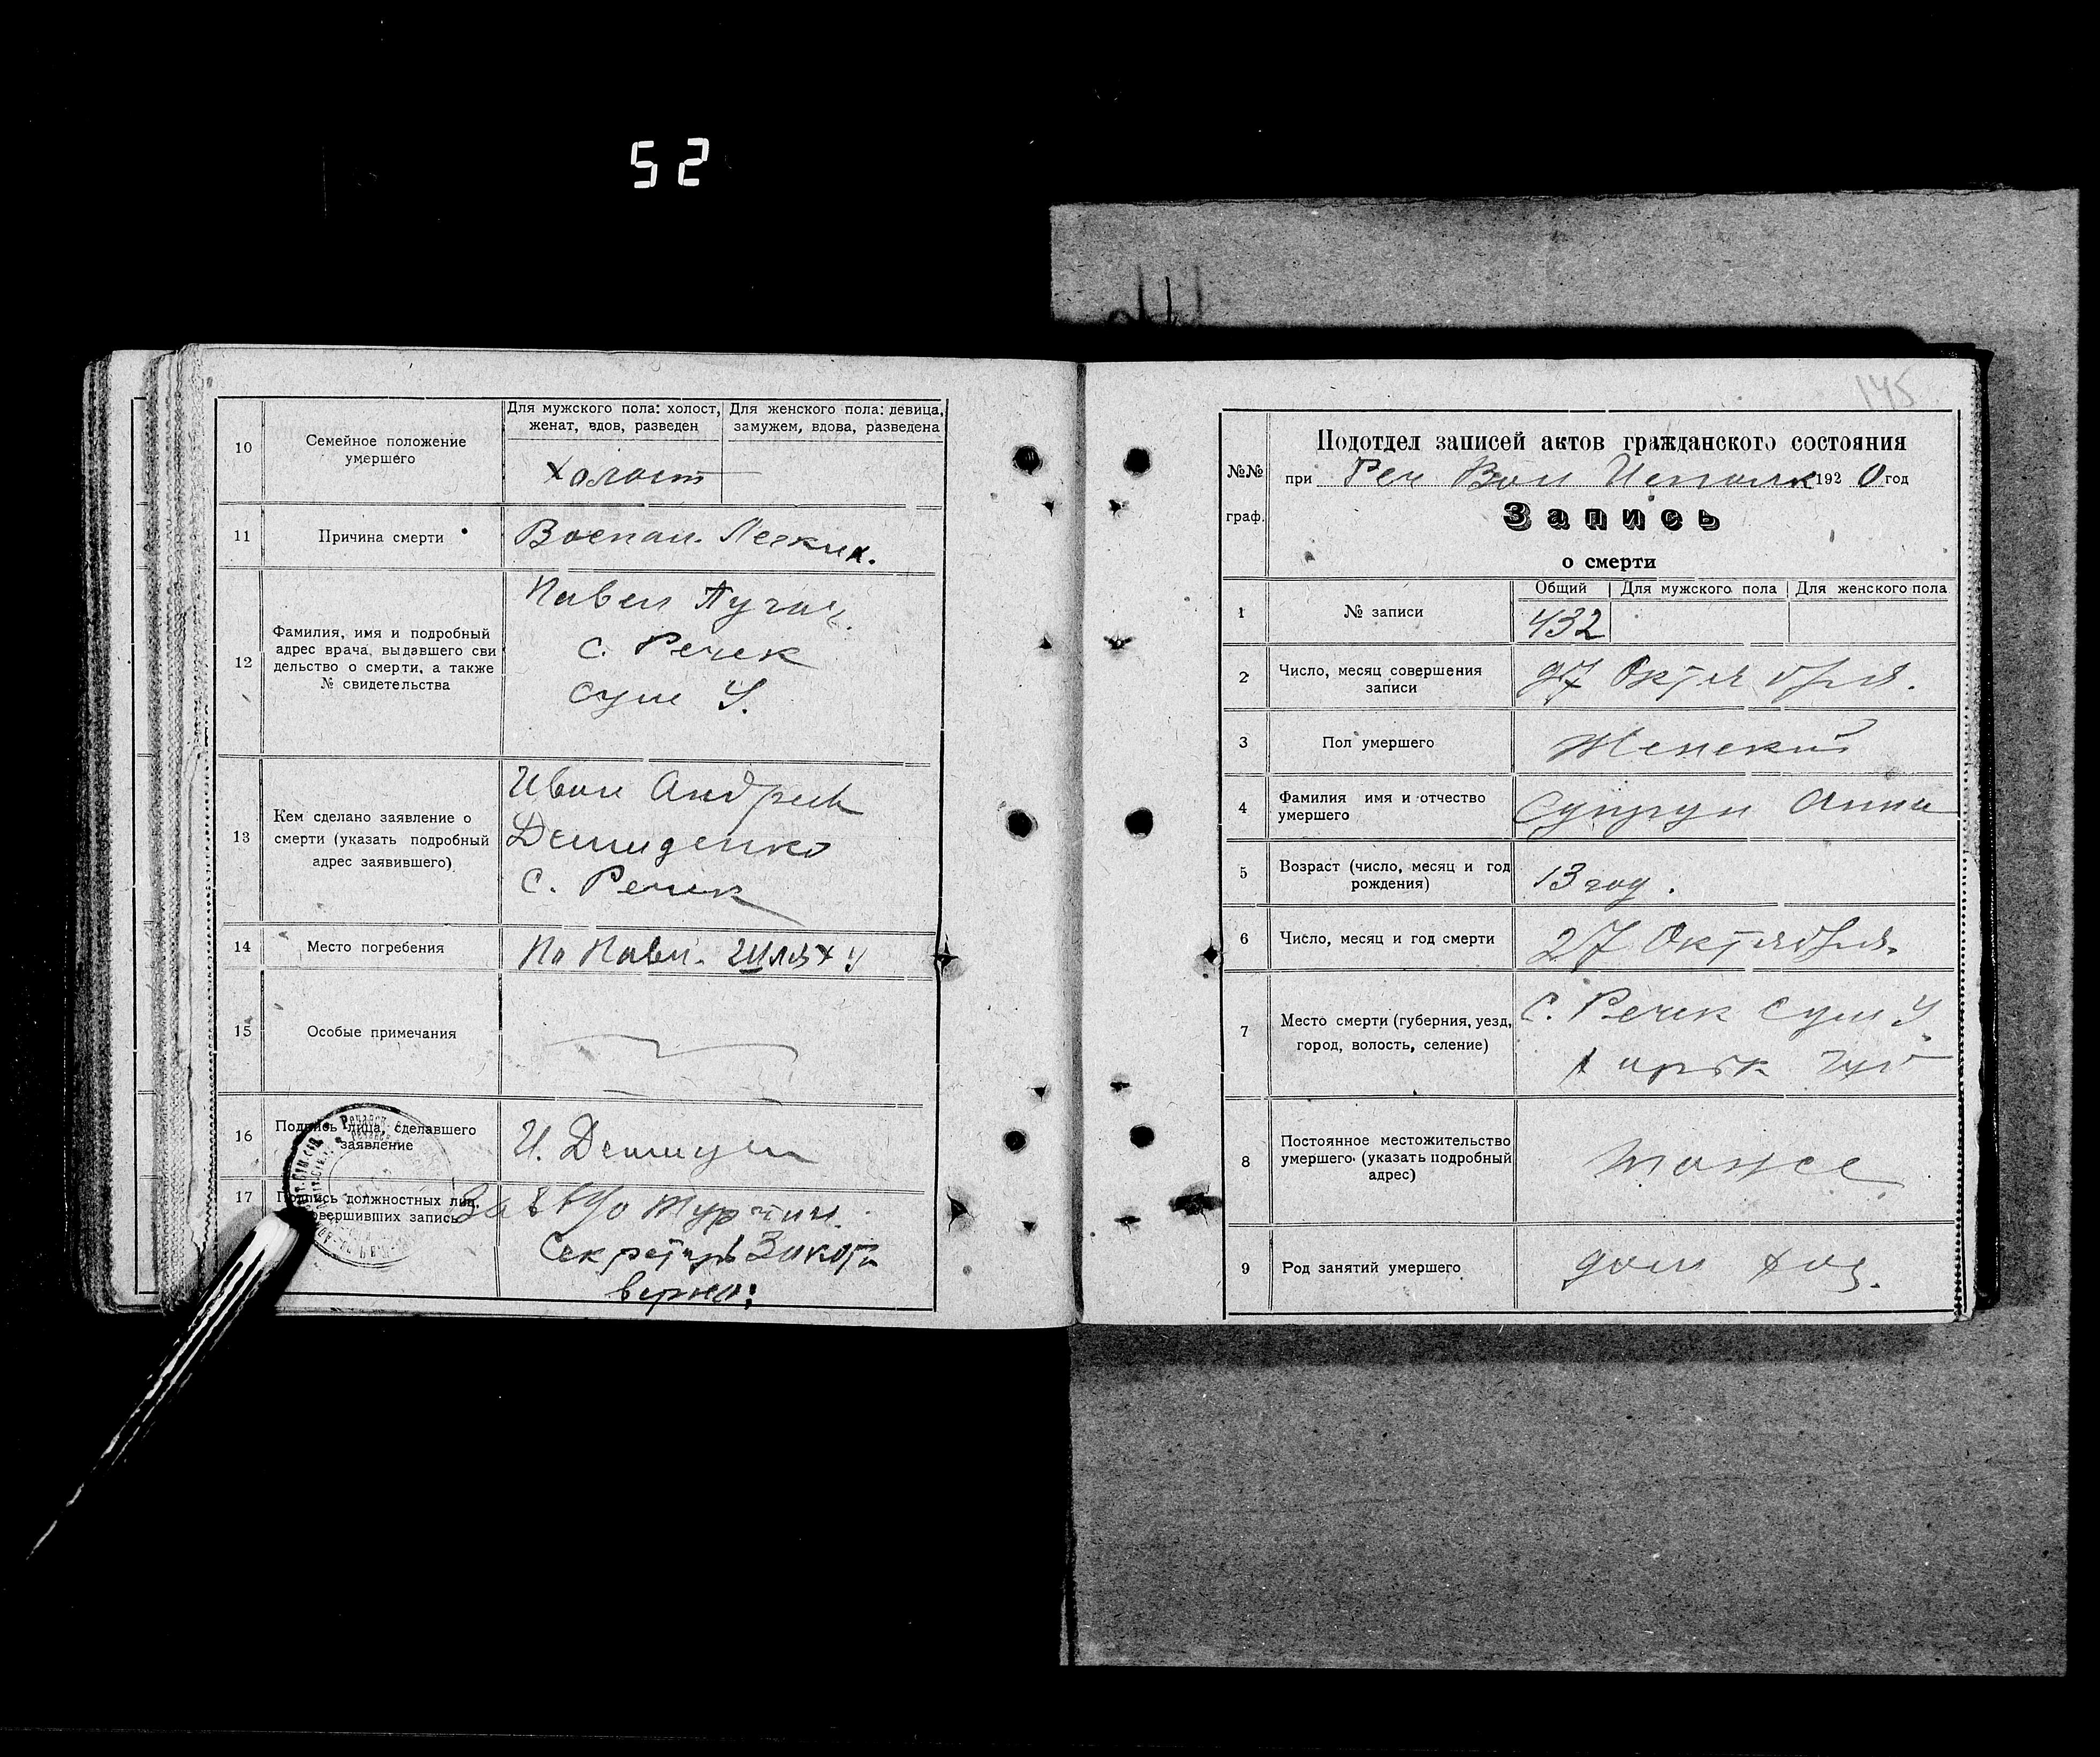 52
10
Семейное положение
умершего
Для мужского пола: холост,
женат, вдов, разведен
Для женского пола: девица,
замужем, вдова, разведена
холост
11
Причина смерти
Воспал. Легких.
12
Фамилия, имя и подробный
адрес врача, выдавшего сви
дельство о смерти, а также
№ свидетельства
Павел Пугач
с. Речек
Сум У.
13
Кем сделано заявление о
смерти (указать подробный
адрес заявившего)
Иван Андрев
Демиденко
с. Речек
14
Место погребения
На Павл. шляху
15
Особые примечания
16
Подпись лица, сделавшего
заявление
И. Демиден
17
Подпись должностных лиц,
совершивших запись
Секретарь
верно:
145
№№
граф.
Подотдел записей актов гражданского состояния
при Реч Вол Исполк 1920 год
Запись
о смерти
1
№ записи
Общий
Для мужского пола
Для женского пола
432
2
Число, месяц совершения
записи
27 Октября.
3
Пол умершего
Женский
4
Фамилия имя и отчество
умершего
Супрун Анна
5
Возраст (число, месяц и год
рождения)
13 год.
6
Число, месяц и год смерти
27 Октября.
7
Место смерти (губерния, уезд,
город, волость, селение)
с. Речек Сум У
Харьк губ
8
Постоянное местожительство
умершего (указать подробный
адрес)
тоже
9
Род занятий умершего
дом хоз.